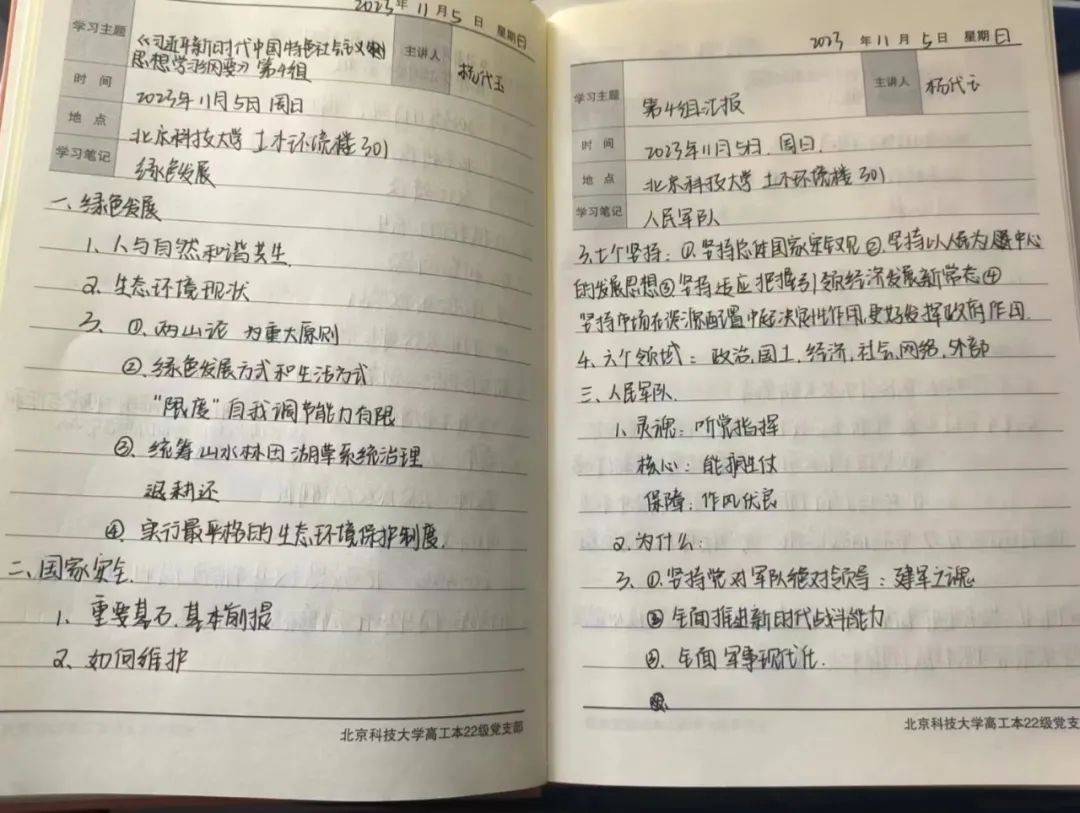 2023年 11月 5日 星期日
学习主题 《习近平新时代中国特色社会主义
思想学习纲要》第4组
主讲人 杨代玉
时间 2023年11月5日 周日
地点 北京科技大学 土木环境楼301
学习笔记 绿色发展
一、绿色发展
1、人与自然和谐共生.
2、生态环境现状
3、①、两山论 为重大原则
②、绿色发展方式和生活方式
"限度"自我调节能力有限
③、统筹山水林田湖草系统治理
退耕还
④、实行最严格的生态环境保护制度.
二、国家安全.
1、重要基石.基本前提
2、如何维护
北京科技大学高工本22级党支部
2023年 11月 5日 星期日
学习主题 第4组汇报
主讲人 杨代玉
时间 2023年11月5日.周日.
地点 北京科技大学 土木环境楼301
学习笔记 人民军队
3、七个坚持:①.坚持总体国家安全观②.坚持以人民为中心
的发展思想③坚持适应把握引领经济发展新常态④
坚持市场在资源配置中起决定性作用,更好发挥政府作用.
4、六个领域:政治,国土,经济,社会,网络,外部
三、人民军队.
1、灵魂:听党指挥
核心:能打胜仗
保障:作风优良
2、为什么:
3、①.坚持党对军队绝对领导:建军之魂
②全面推进新时代战斗能力
③.全面军事现代化.
北京科技大学高工本22级党支